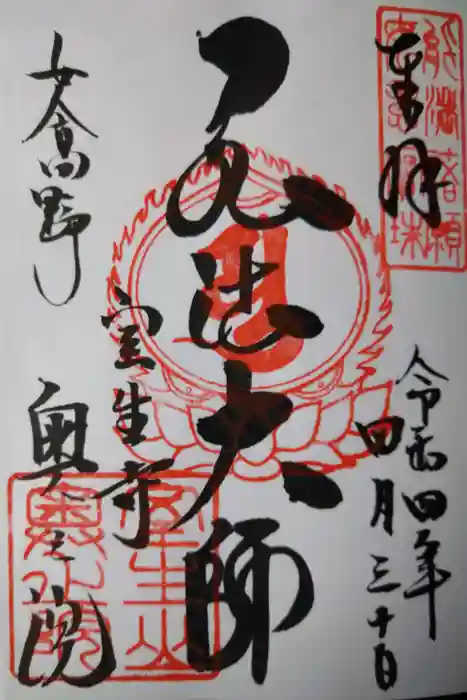 奉拝
令和四年
四月三十日
弘法大師
室生寺
女人高野
奥之院
能満諸願
室生山
奥之院